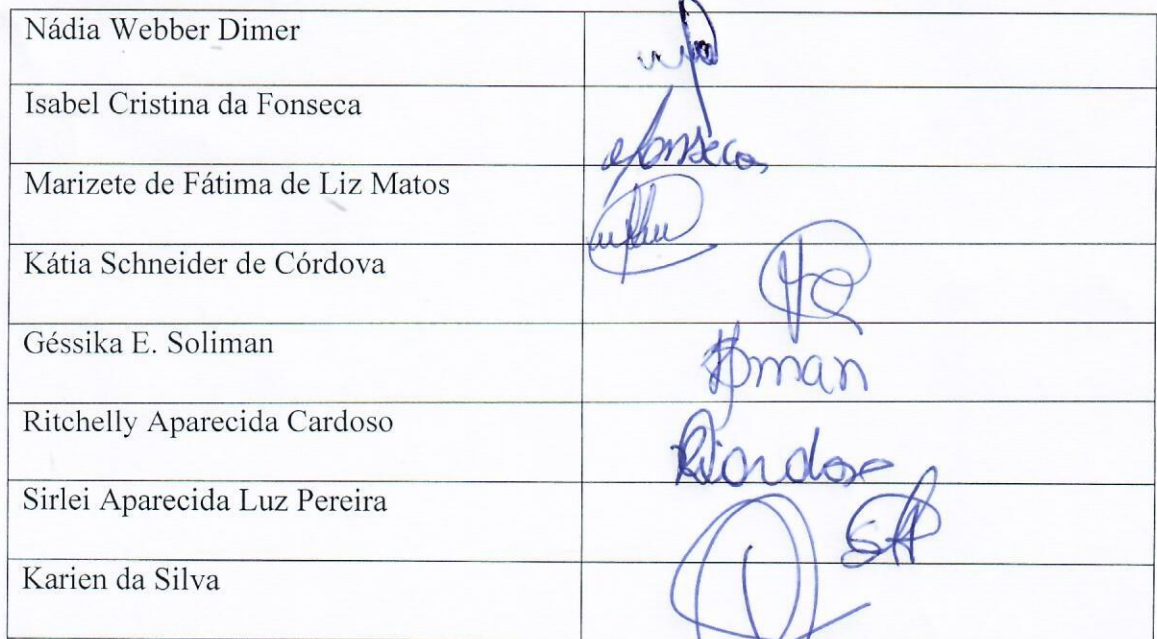 Nádia Webber Dimer
Isabel Cristina da Fonseca
efonseca
Marizete de Fátima de Liz Matos
Kátia Schneider de Córdova
Géssika E. Soliman
Ritchelly Aparecida Cardoso
RCardoso
Sirlei Aparecida Luz Pereira
SAP
Karien da Silva